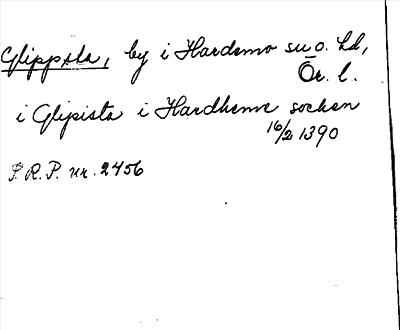 Glippsta, by i Hardemo sn o. hd,
Ör. l.
i Glipista i Hardheme socken
16/2 1390
S.R.P. nr. 2456